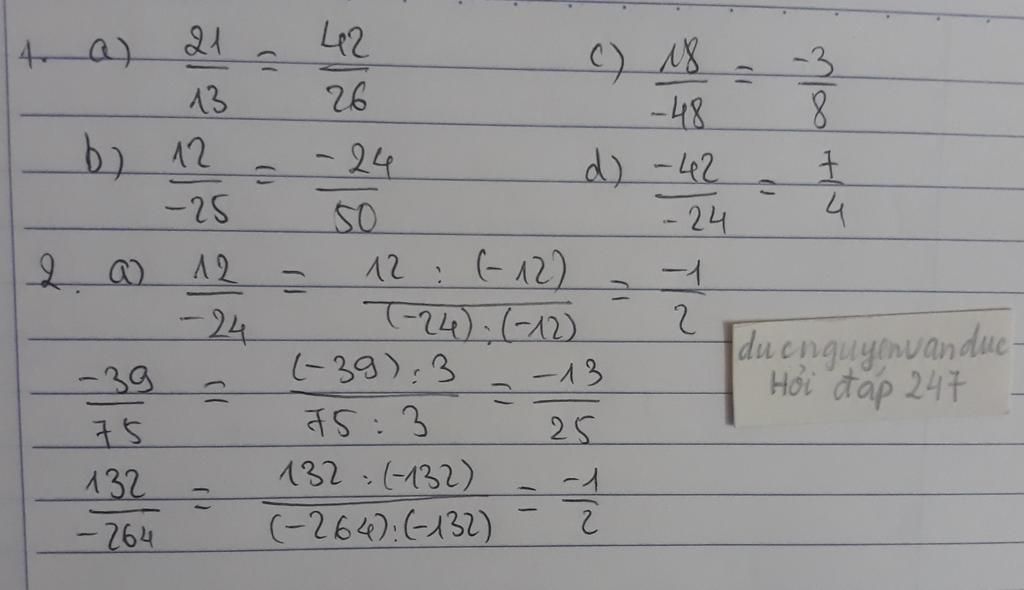 1. a) 21/13 = 42/26 c) 18/-48 = -3/8
b) 12/-25 = -24/50 d) -42/-24 = 7/4
2. a) 12/-24 = 12 : (-12)/(-24) : (-12) = -1/2
-39/75 = (-39) : 3/75 : 3 = -13/25
132/-264 = 132 : (-132)/(-264) : (-132) = -1/2
ducnguyenvanduc
Hỏi đáp 247